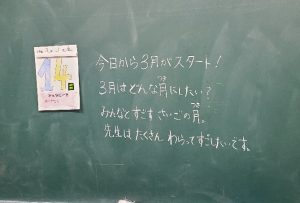 14
今日から3月がスタート!
3月はどんな月にしたい?
つき
みんなとすごすさいごの月。
つき
先生はたくさんわらってすごしたいです。